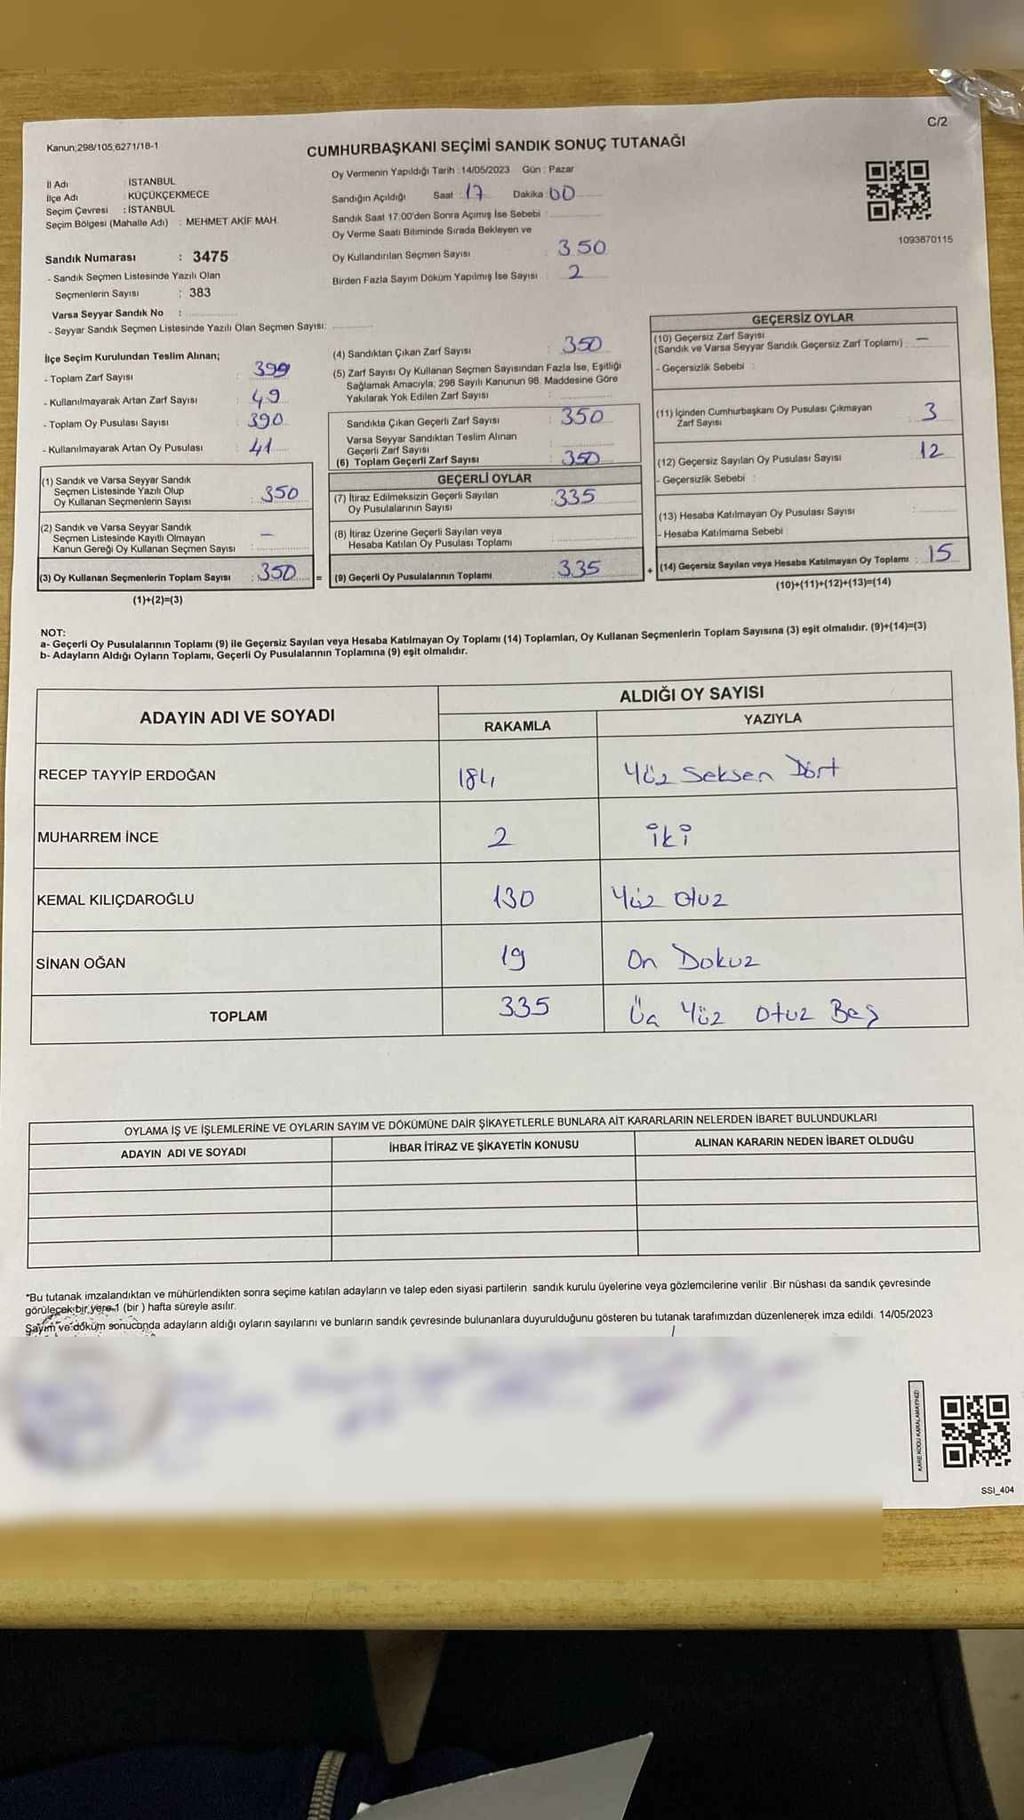 C/2
Kanun;298/105,6271/18-1
CUMHURBAŞKANI SEÇİMİ SANDIK SONUÇ TUTANAĞI
İl Adı : İSTANBUL
İlçe Adı : KÜÇÜKÇEKMECE
Seçim Çevresi : İSTANBUL
Seçim Bölgesi (Mahalle Adı) : MEHMET AKİF MAH.
Sandık Numarası : 3475
- Sandık Seçmen Listesinde Yazılı Olan
Seçmenlerin Sayısı : 383
Varsa Seyyar Sandık No :
- Seyyar Sandık Seçmen Listesinde Yazılı Olan Seçmen Sayısı:
Oy Vermenin Yapıldığı Tarih : 14/05/2023 Gün : Pazar
Sandığın Açıldığı Saat : 17 Dakika : 00
Sandık Saat 17.00'den Sonra Açımış İse Sebebi :
Oy Verme Saati Bitiminde Sırada Bekleyen ve
Oy Kullandırılan Seçmen Sayısı : 350
Birden Fazla Sayım Döküm Yapılmış İse Sayısı : 2
1093870115
İlçe Seçim Kurulundan Teslim Alınan;
- Toplam Zarf Sayısı : 399
- Kullanılmayarak Artan Zarf Sayısı : 49
- Toplam Oy Pusulası Sayısı : 390
- Kullanılmayarak Artan Oy Pusulası : 41
(1) Sandık ve Varsa Seyyar Sandık
Seçmen Listesinde Yazılı Olup
Oy Kullanan Seçmenlerin Sayısı : 350
(2) Sandık ve Varsa Seyyar Sandık
Seçmen Listesinde Kayıtlı Olmayan
Kanun Gereği Oy Kullanan Seçmen Sayısı : -
(3) Oy Kullanan Seçmenlerin Toplam Sayısı : 350 =
(1)+(2)=(3)
(4) Sandıktan Çıkan Zarf Sayısı : 350
(5) Zarf Sayısı Oy Kullanan Seçmen Sayısından Fazla İse, Eşitliği
Sağlamak Amacıyla; 298 Sayılı Kanunun 98. Maddesine Göre
Yakılarak Yok Edilen Zarf Sayısı :
Sandıkta Çıkan Geçerli Zarf Sayısı : 350
Varsa Seyyar Sandıktan Teslim Alınan
Geçerli Zarf Sayısı :
(6) Toplam Geçerli Zarf Sayısı : 350
GEÇERLİ OYLAR
(7) İtiraz Edilmeksizin Geçerli Sayılan
Oy Pusulalarının Sayısı : 335
(8) İtiraz Üzerine Geçerli Sayılan veya
Hesaba Katılan Oy Pusulası Toplamı :
(9) Geçerli Oy Pusulalarının Toplamı : 335 +
GEÇERSİZ OYLAR
(10) Geçersiz Zarf Sayısı
(Sandık ve Varsa Seyyar Sandık Geçersiz Zarf Toplamı) : -
- Geçersizlik Sebebi :
(11) İçinden Cumhurbaşkanı Oy Pusulası Çıkmayan
Zarf Sayısı : 3
(12) Geçersiz Sayılan Oy Pusulası Sayısı : 12
- Geçersizlik Sebebi :
(13) Hesaba Katılmayan Oy Pusulası Sayısı :
- Hesaba Katılmama Sebebi :
(14) Geçersiz Sayılan veya Hesaba Katılmayan Oy Toplamı : 15
(10)+(11)+(12)+(13)=(14)
NOT:
a- Geçerli Oy Pusulalarının Toplamı (9) ile Geçersiz Sayılan veya Hesaba Katılmayan Oy Toplamı (14) Toplamları, Oy Kullanan Seçmenlerin Toplam Sayısına (3) eşit olmalıdır. (9)+(14)=(3)
b- Adayların Aldığı Oyların Toplamı, Geçerli Oy Pusulalarının Toplamına (9) eşit olmalıdır.
ADAYIN ADI VE SOYADI
ALDIĞI OY SAYISI
RAKAMLA YAZIYLA
RECEP TAYYİP ERDOĞAN 184 Yüz Seksen Dört
MUHARREM İNCE 2 iki
KEMAL KILIÇDAROĞLU 130 Yüz Otuz
SİNAN OĞAN 19 On Dokuz
TOPLAM 335 Üç Yüz Otuz Beş
OYLAMA İŞ VE İŞLEMLERİNE VE OYLARIN SAYIM VE DÖKÜMÜNE DAİR ŞİKAYETLERLE BUNLARA AİT KARARLARIN NELERDEN İBARET BULUNDUKLARI
ADAYIN ADI VE SOYADI İHBAR İTİRAZ VE ŞİKAYETİN KONUSU ALINAN KARARIN NEDEN İBARET OLDUĞU
*Bu tutanak imzalandıktan ve mühürlendikten sonra seçime katılan adayların ve talep eden siyasi partilerin sandık kurulu üyelerine veya gözlemcilerine verilir .Bir nüshası da sandık çevresinde
görülecek bir yere 1 (bir ) hafta süreyle asılır.
Sayım ve döküm sonucunda adayların aldığı oyların sayılarını ve bunların sandık çevresinde bulunanlara duyurulduğunu gösteren bu tutanak tarafımızdan düzenlenerek imza edildi. 14/05/2023
KARE KODU KARALAMAYINIZ!
SSI_404